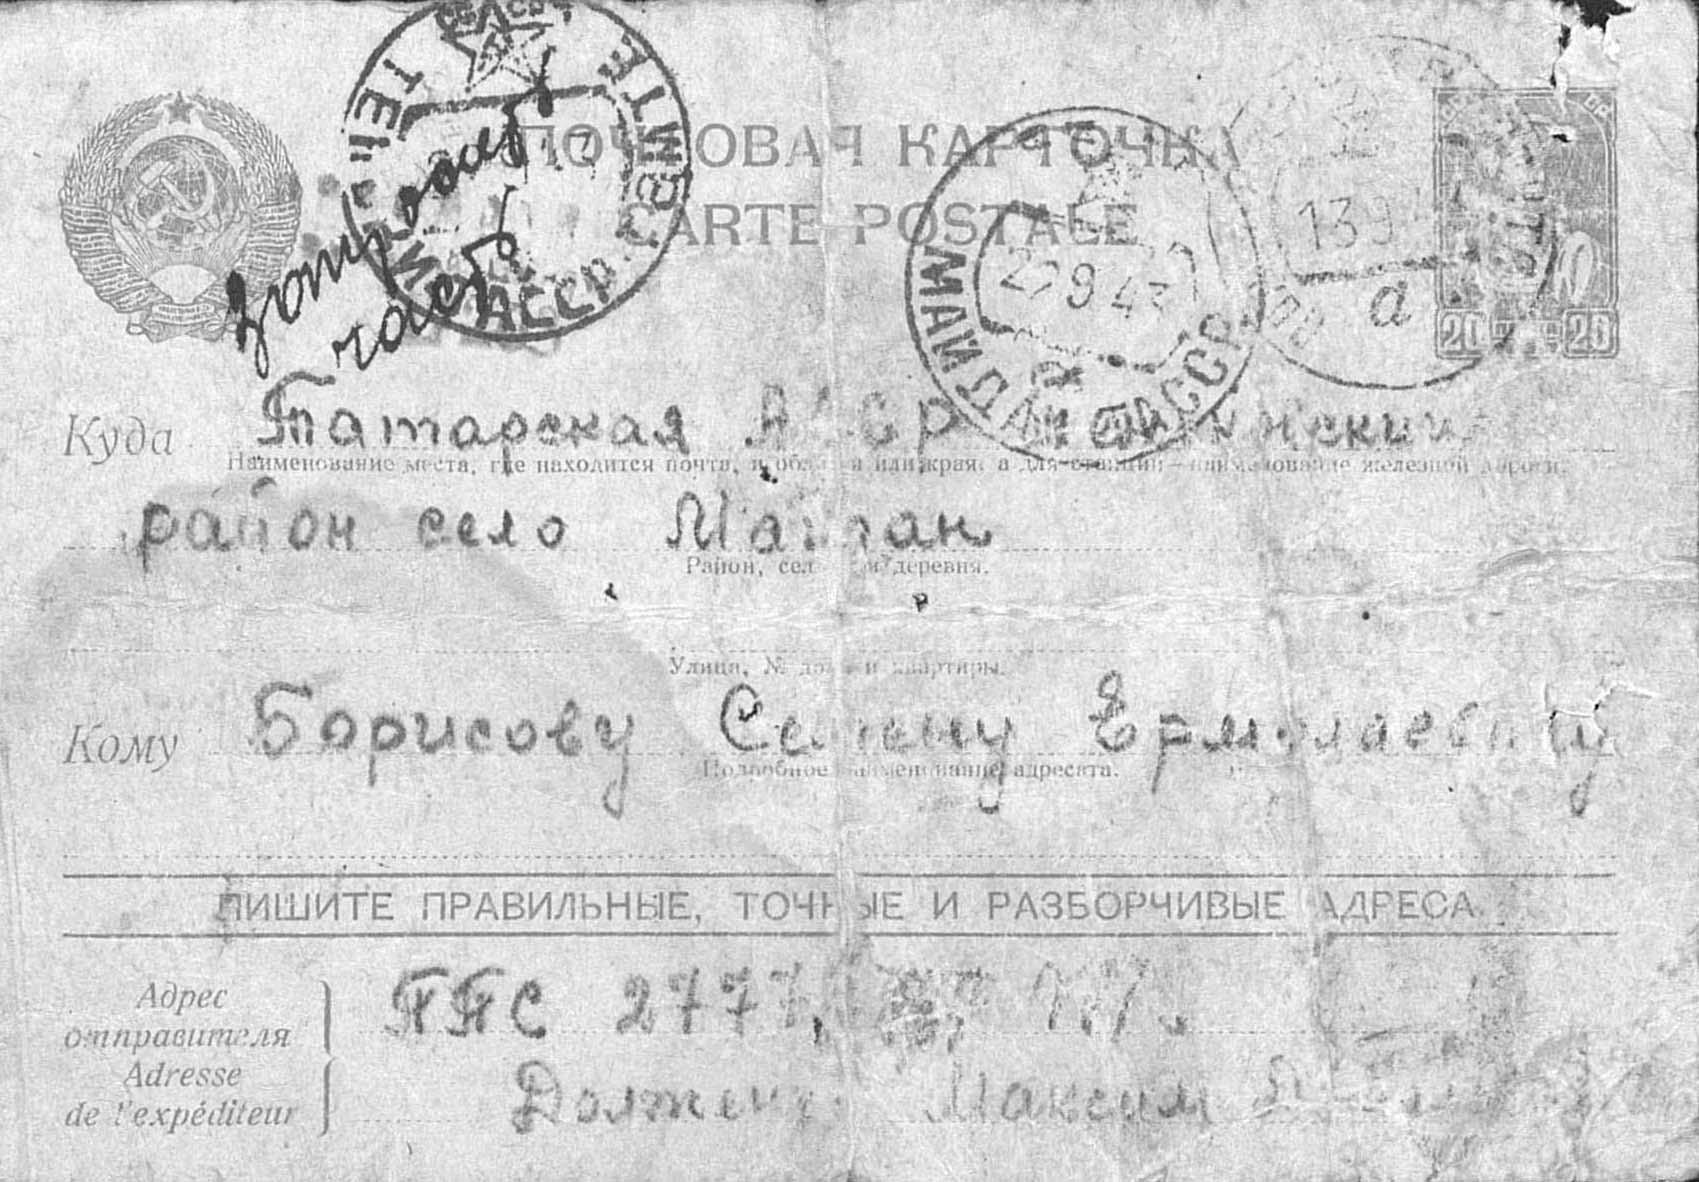 ПОЧТОВАЯ КАРТОЧКА
CARTE POSTALE
часть
22 9 43
МАЙДАН ТАССР
13 9
а
20 20
Куда Татарская АССР
Наименование места, где находится почта, и области или края, а для станции — наименование железной дороги.
район село Майдан
Район, село или деревня.
Улица, № дома и квартиры.
Кому Борисову Семену Ермолаевичу
Подробное наименование адресата.
ПИШИТЕ ПРАВИЛЬНЫЕ, ТОЧНЫЕ И РАЗБОРЧИВЫЕ АДРЕСА
Адрес
отправителя
ППС 2777
Adresse
de l'expéditeur
Максим